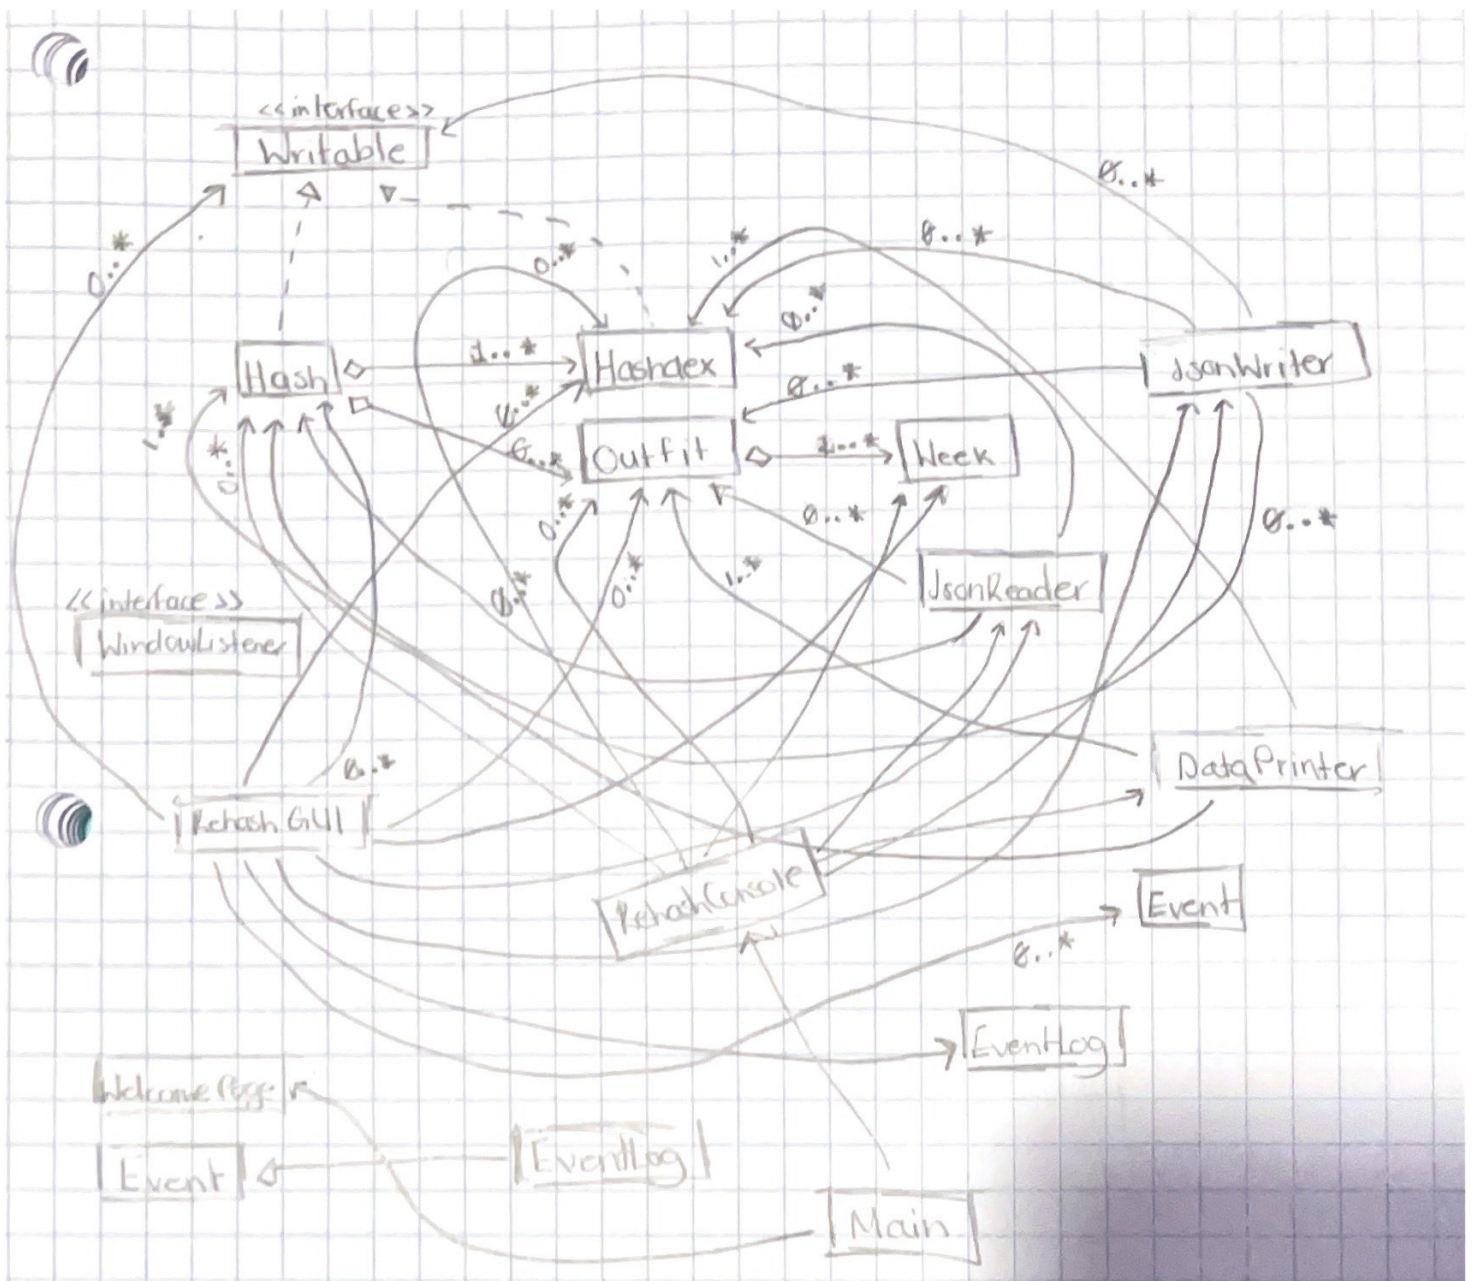 <<interface>>
Writable
0..*
0..*
0..*
1..*
0..*
0..*
Hash
1..*
Hashdex
JsonWriter
0..*
0..*
1..*
0..*
0..*
Outfit
1..*
Week
0..*
0..*
0..*
0..*
0..*
1..*
JsonReader
<<interface>>
WindowListener
0..*
DataPrinter
Rehash GUI
RehashConsole
Event
0..*
EventLog
Welcome Page
Event
EventLog
Main